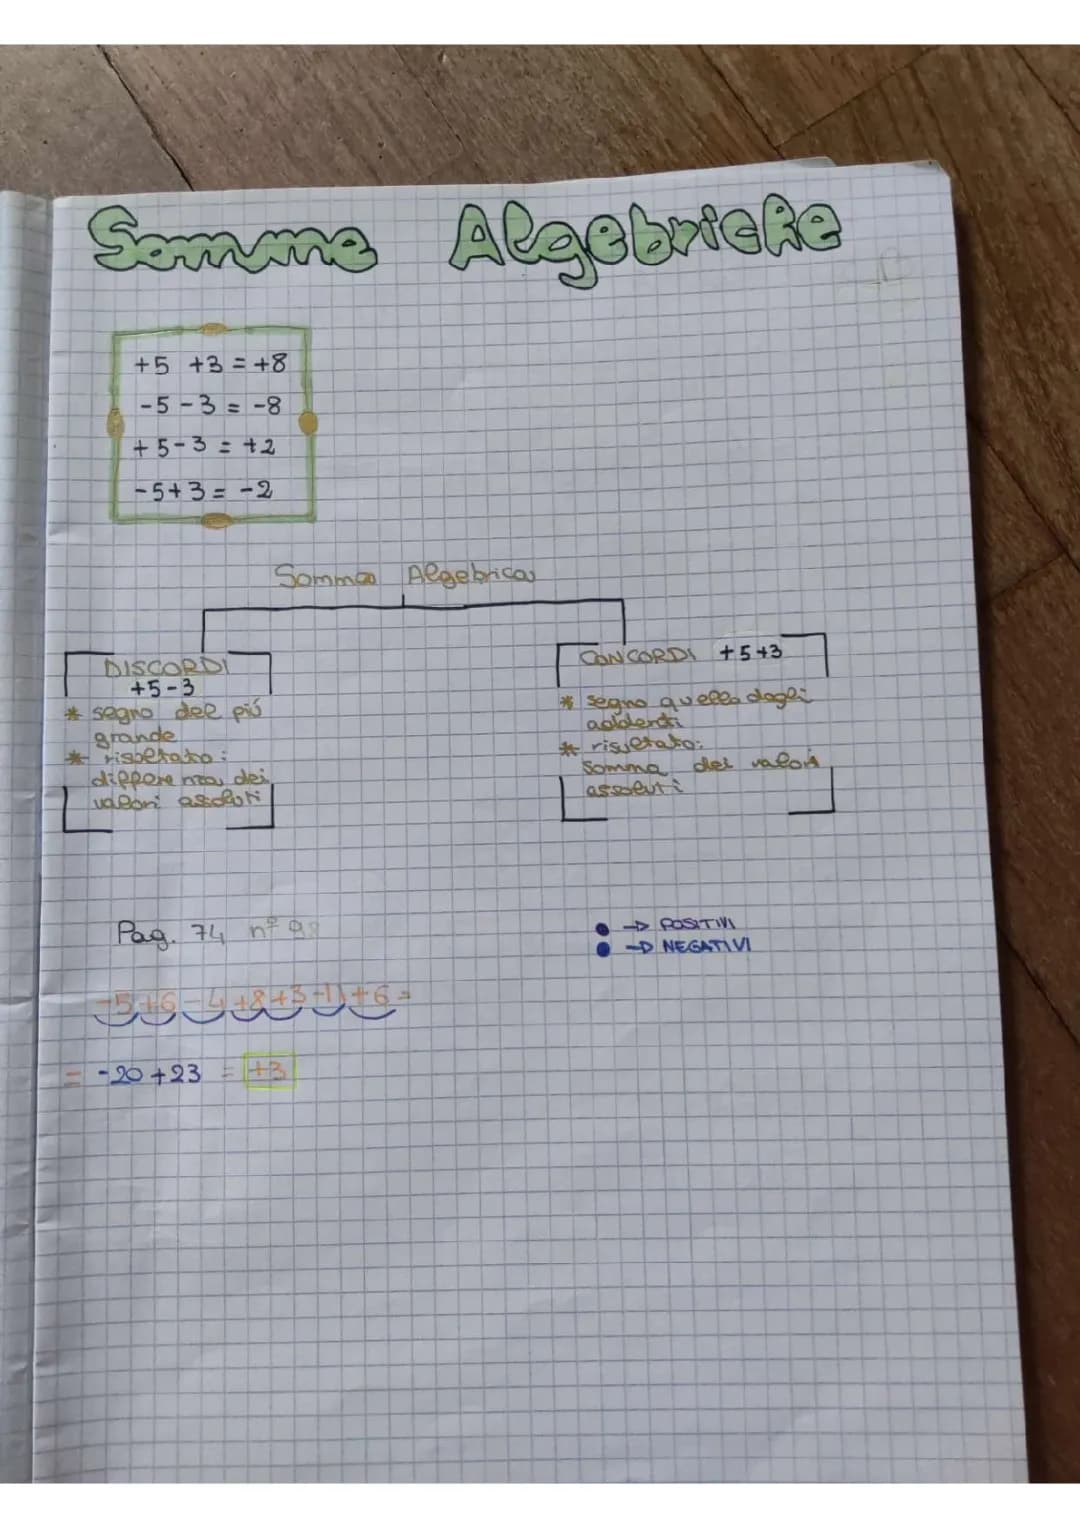 Somme Algebriche
+5 +3 = +8
-5 -3 = -8
+5-3 = +2
-5+3 = -2
Somma Algebrica
DISCORDI
+5-3
* segno del più
grande
* risultato:
differenza dei
valori assoluti
CONCORDI +5+3
* segno quello degli
addendi
* risultato:
somma dei valori
assoluti
Pag. 74 n°
→ POSITIVI
→ NEGATIVI
-5+6-4+8+3-11+6=
= -20+23 = +3